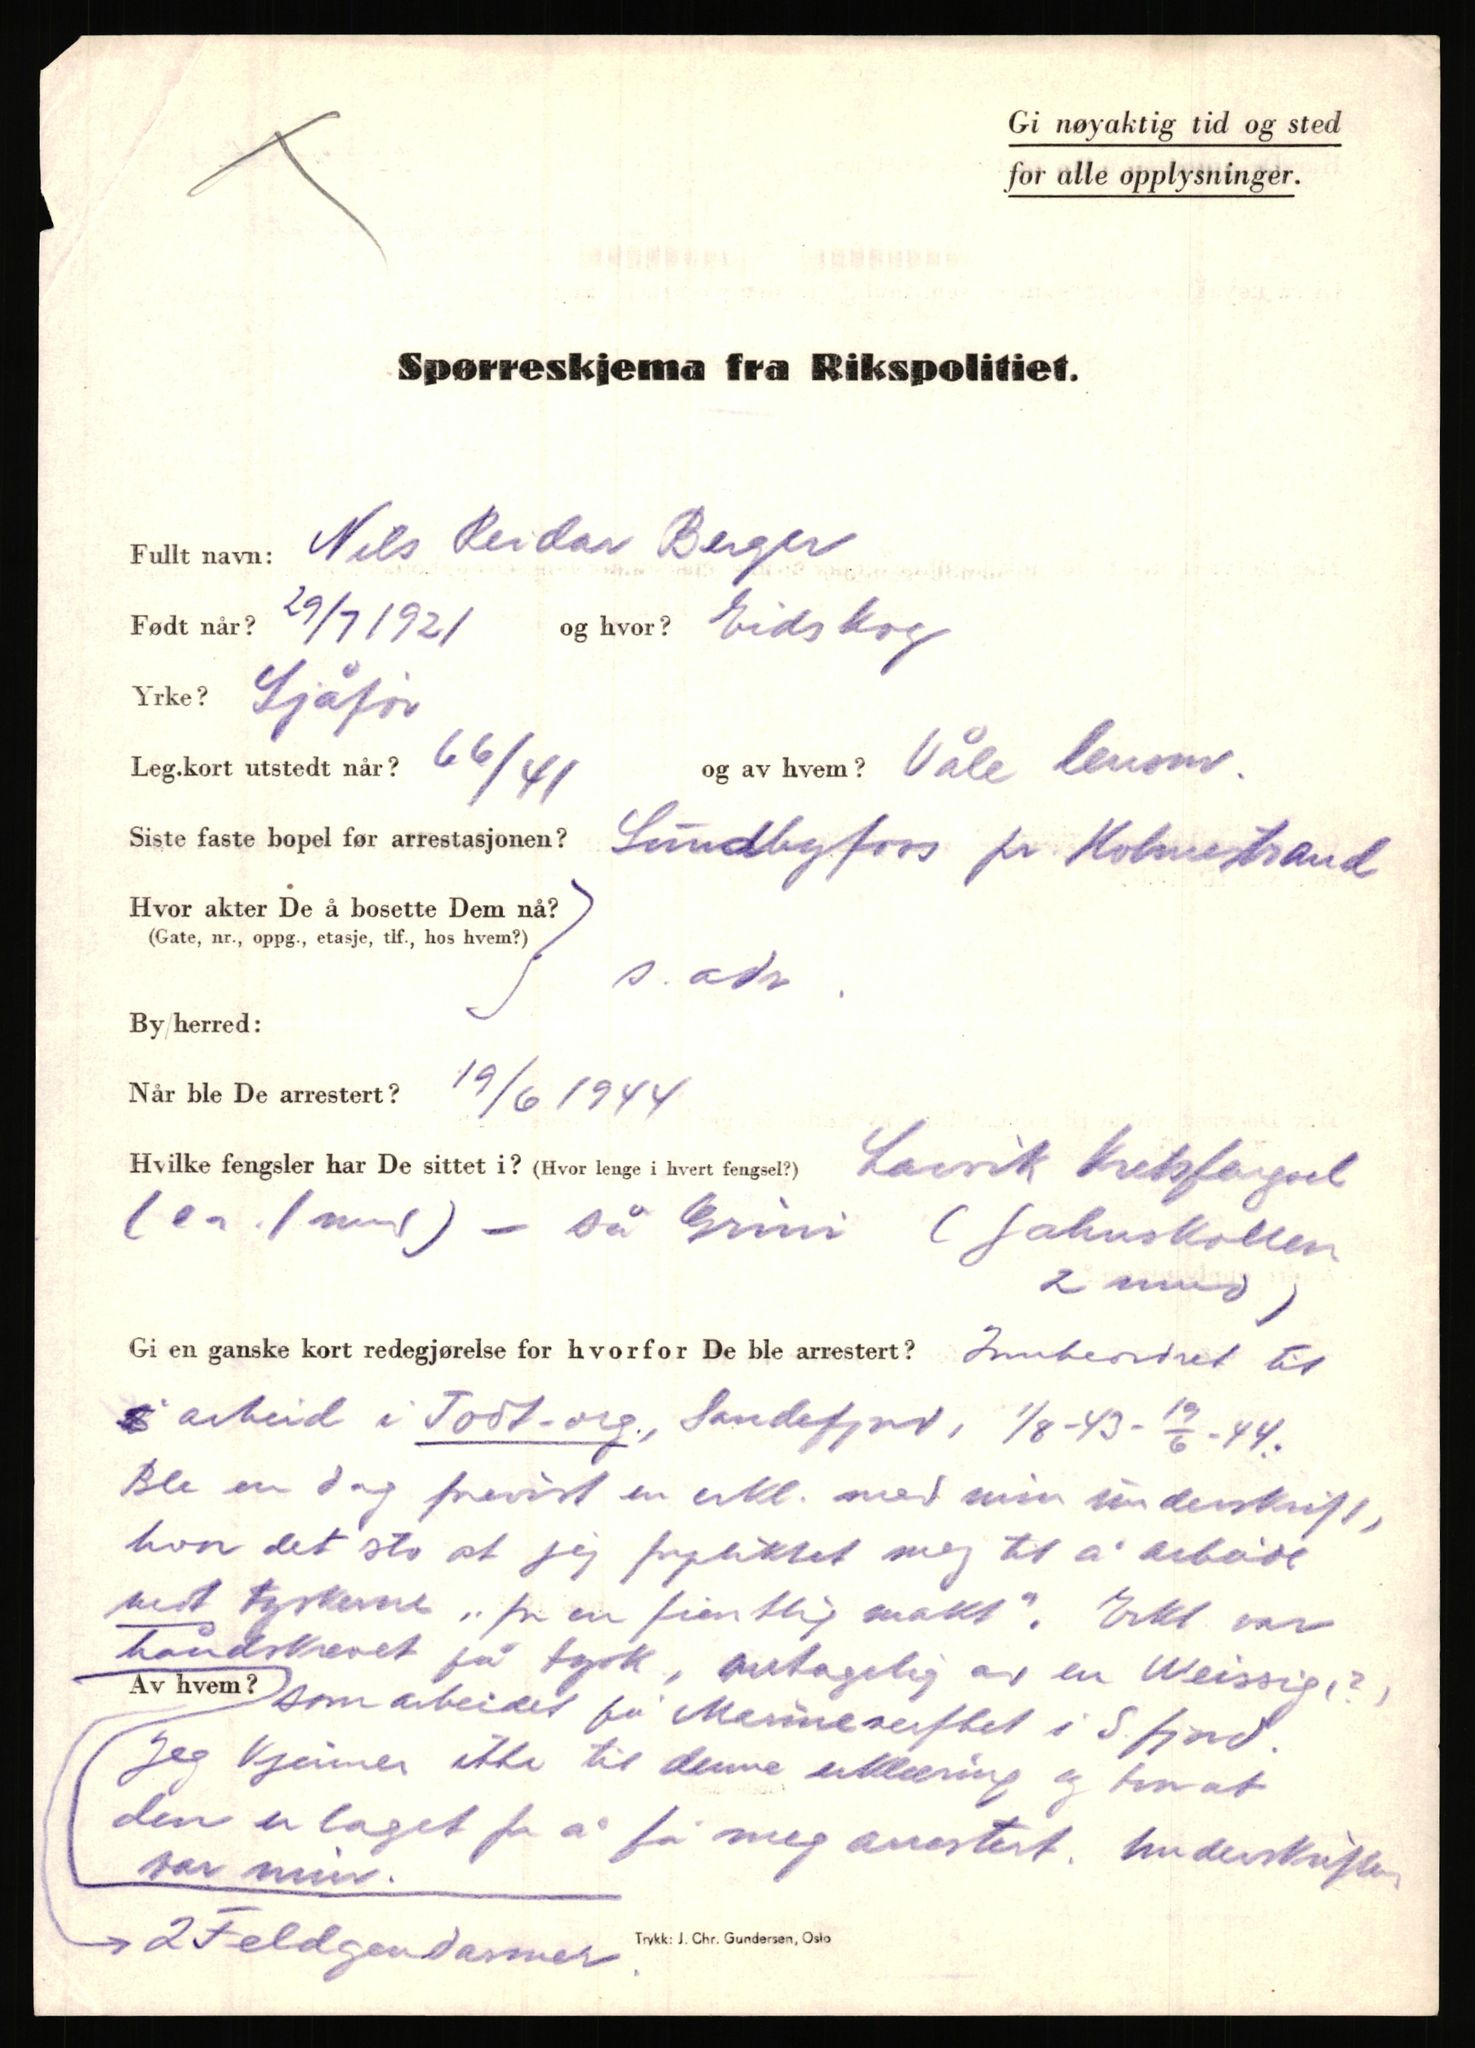 Gi nøyaktig tid og sted
for alle opplysninger.
Spørreskjema fra Rikspolitiet.
Fullt navn: Nils Reidar Berger
Født når? 29/7 1921 og hvor? Eidskog
Yrke? Sjåfør
Leg.kort utstedt når? 66/41 og av hvem? Våle lensm.
Siste faste bopel før arrestasjonen? Sundbyfoss pr Holmestrand
Hvor akter De å bosette Dem nå?
(Gate, nr., oppg., etasje, tlf., hos hvem?)
s. adr.
By/herred:
Når ble De arrestert? 19/6 1944
Hvilke fengsler har De sittet i? (Hvor lenge i hvert fengsel?) Larvik kretsfengsel
(ca. 1 mnd) - så Grini (
2 mnd)
Gi en ganske kort redegjørelse for hvorfor De ble arrestert? Innbeordret til
arbeid i Todt-org., Sandefjord, 1/8-43 - 19/6-44.
Ble en dag forevist en erkl. med min underskrift,
hvor det sto at jeg forpliktet meg til å arbeide
mot tyskerne „for en fientlig makt". Erkl. var
håndskrevet på tysk, antagelig av en Weissig (?),
Av hvem? som arbeidet på Marineverftet i S.fjord.
Jeg kjenner ikke til denne erklæring og tror at
den er laget for å få meg arrestert. Underskriften
var min.
2 Feldgendarmer.
Trykk: J. Chr. Gundersen, Oslo